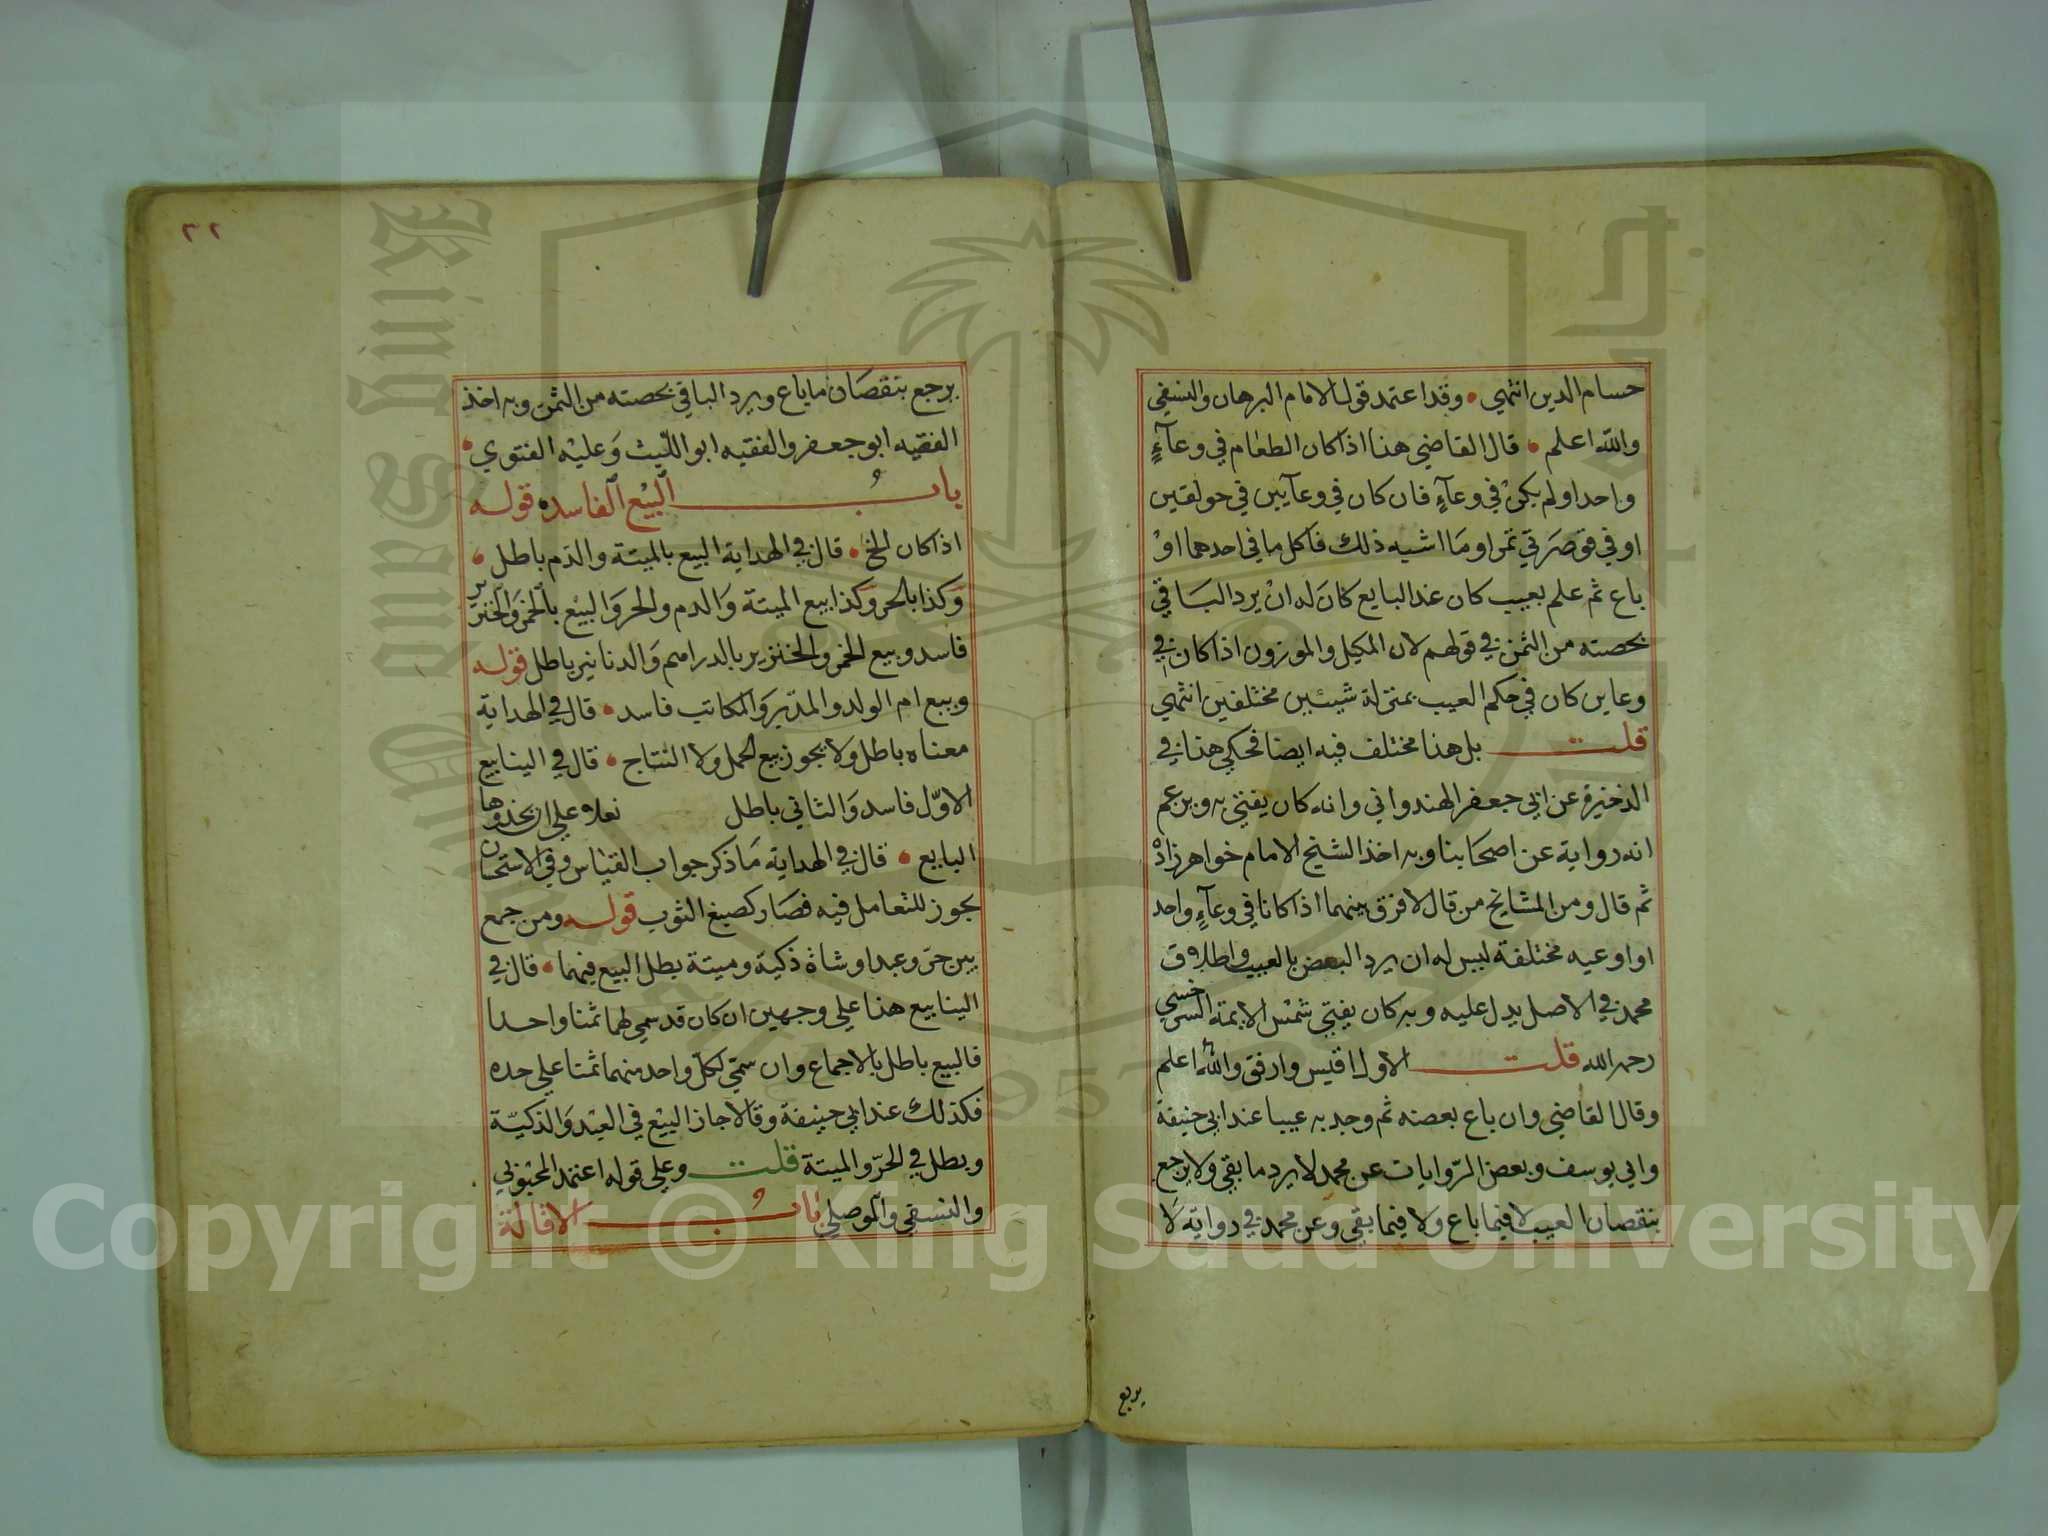 حسام الدين انتهي • وقد اعتمد قول الامام البرهان والنسفي
والله اعلم • قال القاضي هذا اذا كان الطعام في وعآءٍ
واحد او لم يكن في وعآءٍ فان كان في وعآيين في جولقين
او في قوصرتي تمر او ما اشبه ذلك فاكل ما في احدهما او
باع ثم علم بعيب كان عند البايع كان له ان يرد الباقي
بحصته من الثمن في قولهم لان المكيل والموزون اذا كان في
وعاين كان في حكم العيب بمنزلة شيئين مختلفين انتهي
قلت بل هذا مختلف فيه ايضا فحكي هذا في
الذخيرة عن ابي جعفر الهندواني وانه كان يفتي به ويزعم
انه رواية عن اصحابنا وبه اخذ الشيخ الامام خواهرزاده
ثم قال ومن المشايخ من قال لا فرق بينهما اذا كانا في وعآءٍ واحد
او اوعيه مختلفة ليس له ان يرد البعض بالعيب واطلاق
محمد في الاصل يدل عليه وبه كان يفتي شمس الايمة السرخسي
رحمه الله قلت الاول اقيس وارفق والله اعلم
وقال القاضي وان باع بعضه ثم وجد به عيبا عند ابي حنيفة
وابي يوسف وبعض الروايات عن محمد لا يرد ما بقي ولا يرجع
بنقصان العيب لا فيما باع ولا فيما بقي وعن محمد في رواية لا
يرجع
٣٢
يرجع بنقصان ما باع ويرد الباقي بحصته من الثمن وبه اخذ
الفقيه ابو جعفر والفقيه ابو الليث وعليه الفتوي •
باب البيع الفاسد قوله
اذا كان الخ • قال في الهداية البيع بالميتة والدم باطل •
وكذا بالحر وكذا بيع الميتة والدم والحر والبيع بالخمر والخنزير
فاسد وبيع الخمر والخنزير بالدراهم والدنانير باطل قوله
وبيع ام الولد والمدبر والمكاتب فاسد • قال في الهداية
معناه باطل ولا يجوز بيع الحمل ولا النتاج • قال في الينابيع
الاول فاسد والثاني باطل نعلا علي ان يحذوها
البايع • قال في الهداية ما ذكر جواب القياس وفي الاستحسان
يجوز للتعامل فيه فصار كصبغ الثوب قوله ومن جمع
بين حر وعبد او شاة ذكية وميتة بطل البيع فيهما • قال في
الينابيع هذا علي وجهين ان كان قد سمي لهما ثمنا واحدا
فالبيع باطل بالاجماع وان سمي لكل واحد منهما ثمنا علي حده
فكذلك عند ابي حنيفة وقالا جاز البيع في العبد والذكية
وبطل في الحر والميتة قلت وعلى قوله اعتمد المحبوبي
والنسفي والموصلي باب الاقالة
Copyright © King Saud University